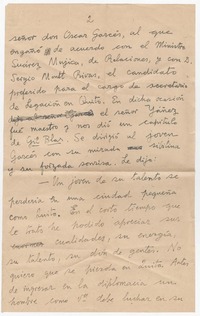 2
señor don Oscar Garcés, al que
engañó de acuerdo con el Ministro
Suárez Mujica, de Relaciones, y con D.
Sergio Montt Rivas, el candidato
preferido para el cargo de secretario
de Legación en Quito. En dicha ocasión
el señor Yáñez
fué maestro y nos dió un capítulo
de Gil Blas. Se dirigió al joven
Garcés con su mirada
y su forzada sonrisa. Le dijo:
—Un joven de su talento se
perdería en una ciudad pequeña
como Quito. En el corto tiempo que
lo trato he podido apreciar sus
cualidades, su energía,
su talento, su don de gentes. No
quiero que se pierda en Quito. Antes
de ingresar en la diplomacia un
hombre como Ud. debe luchar en su